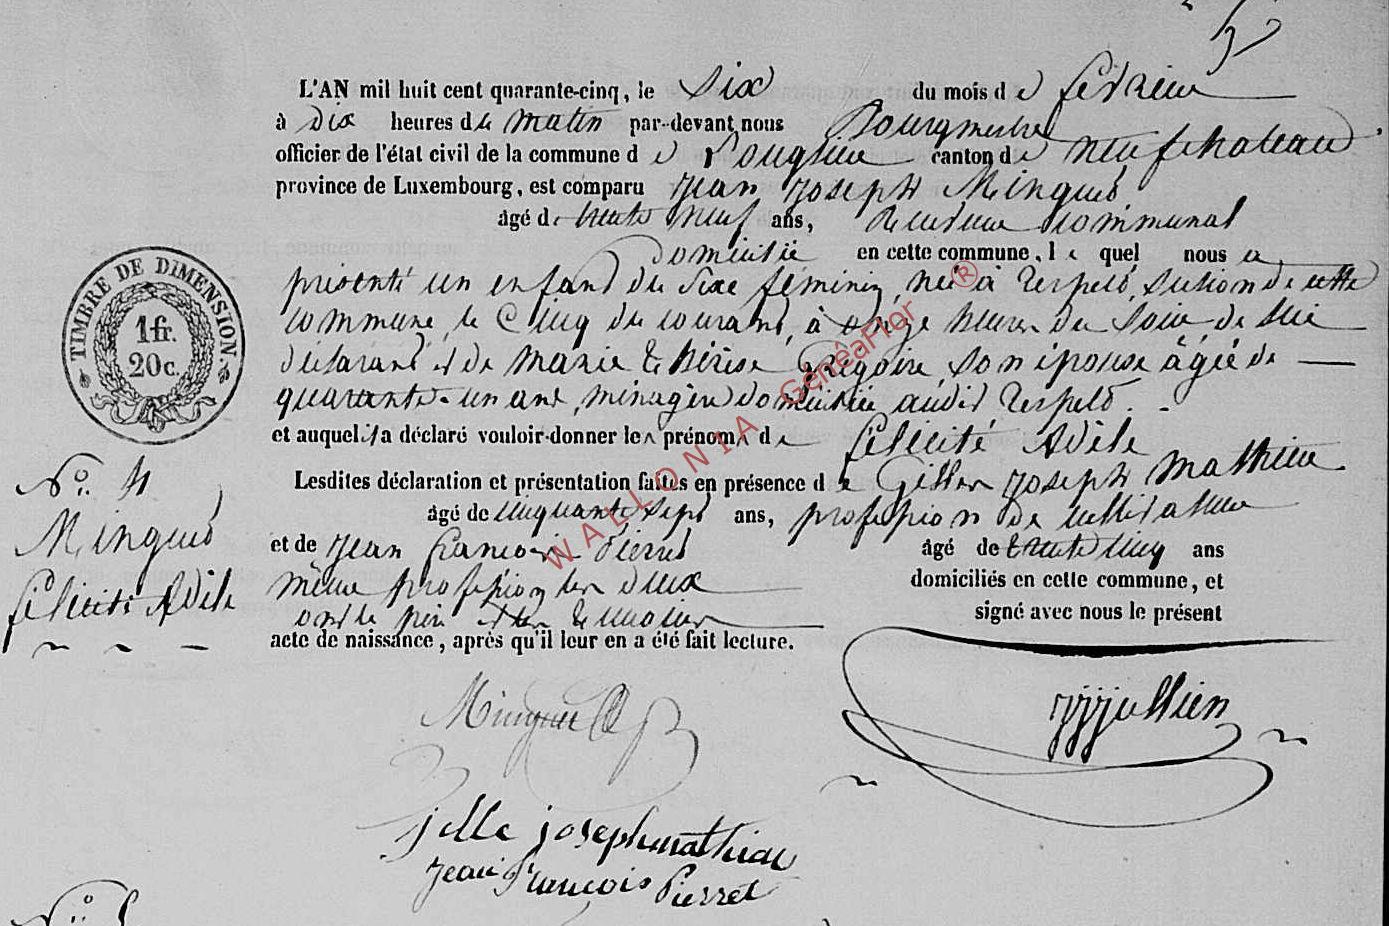 L'AN mil huit cent quarante-cinq, le six du mois de février
à dix heures du matin par-devant nous Bourgmestre
officier de l'état civil de la commune de canton de neufchateau
province de Luxembourg, est comparu Jean Joseph Minguet
âgé de trente neuf ans, receveur communal
domicilié en cette commune, lequel nous a
présenté un enfant du sexe féminin, née à Respelt, section de cette
commune, le Cinq du courant, à onze heures du soir de lui
déclarant et de Marie thérèse Grégoire, son épouse âgée de
quarante-un ans, ménagère domiciliée audit Respelt.
et auquel il a déclaré vouloir donner les prénoms de félicité Adèle
Lesdites déclaration et présentation faites en présence de Gilles Joseph Mathieu
âgé de cinquante sept ans, profession de cultivateur
et de Jean françois Pierret âgé de trente cinq ans
même profession les deux domiciliés en cette commune, et
ont le père et les témoins signé avec nous le présent
acte de naissance, après qu'il leur en a été fait lecture.
TIMBRE DE DIMENSION.
1 fr.
20 c.
No. 4
Minguet
félicité Adèle
WALLONIA GénéaFlor ®
Minguet
jullien
jille joseph mathieu
Jean François Pierret